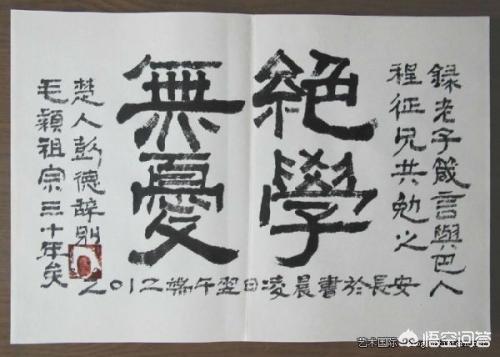 錄老子箴言與巴人
程征兄共勉之
絕學
無憂
楚人彭德辭別
毛穎祖宗三十年矣
2012端午翌日凌晨書於長安
艺术国际
悟空问答